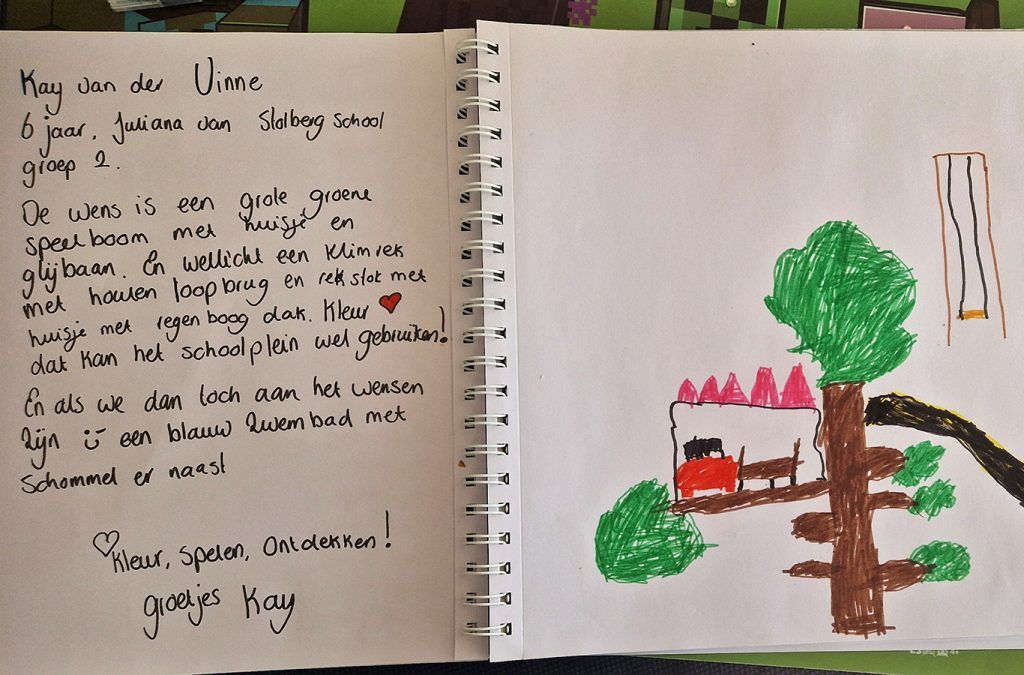 Kay van der Vinne
6 jaar. Juliana van Stolberg School
groep 2.
De wens is een grote groene
speelboom met huisje en
glijbaan. En wellicht een klimrek
met houten loopbrug en rekstok met
huisje met regenboog dak. Kleur ❤
dat kan het schoolplein wel gebruiken!
En als we dan toch aan het wensen
zijn :) een blauw zwembad met
schommel er naast
♡ Kleur, spelen, ontdekken!
groetjes Kay